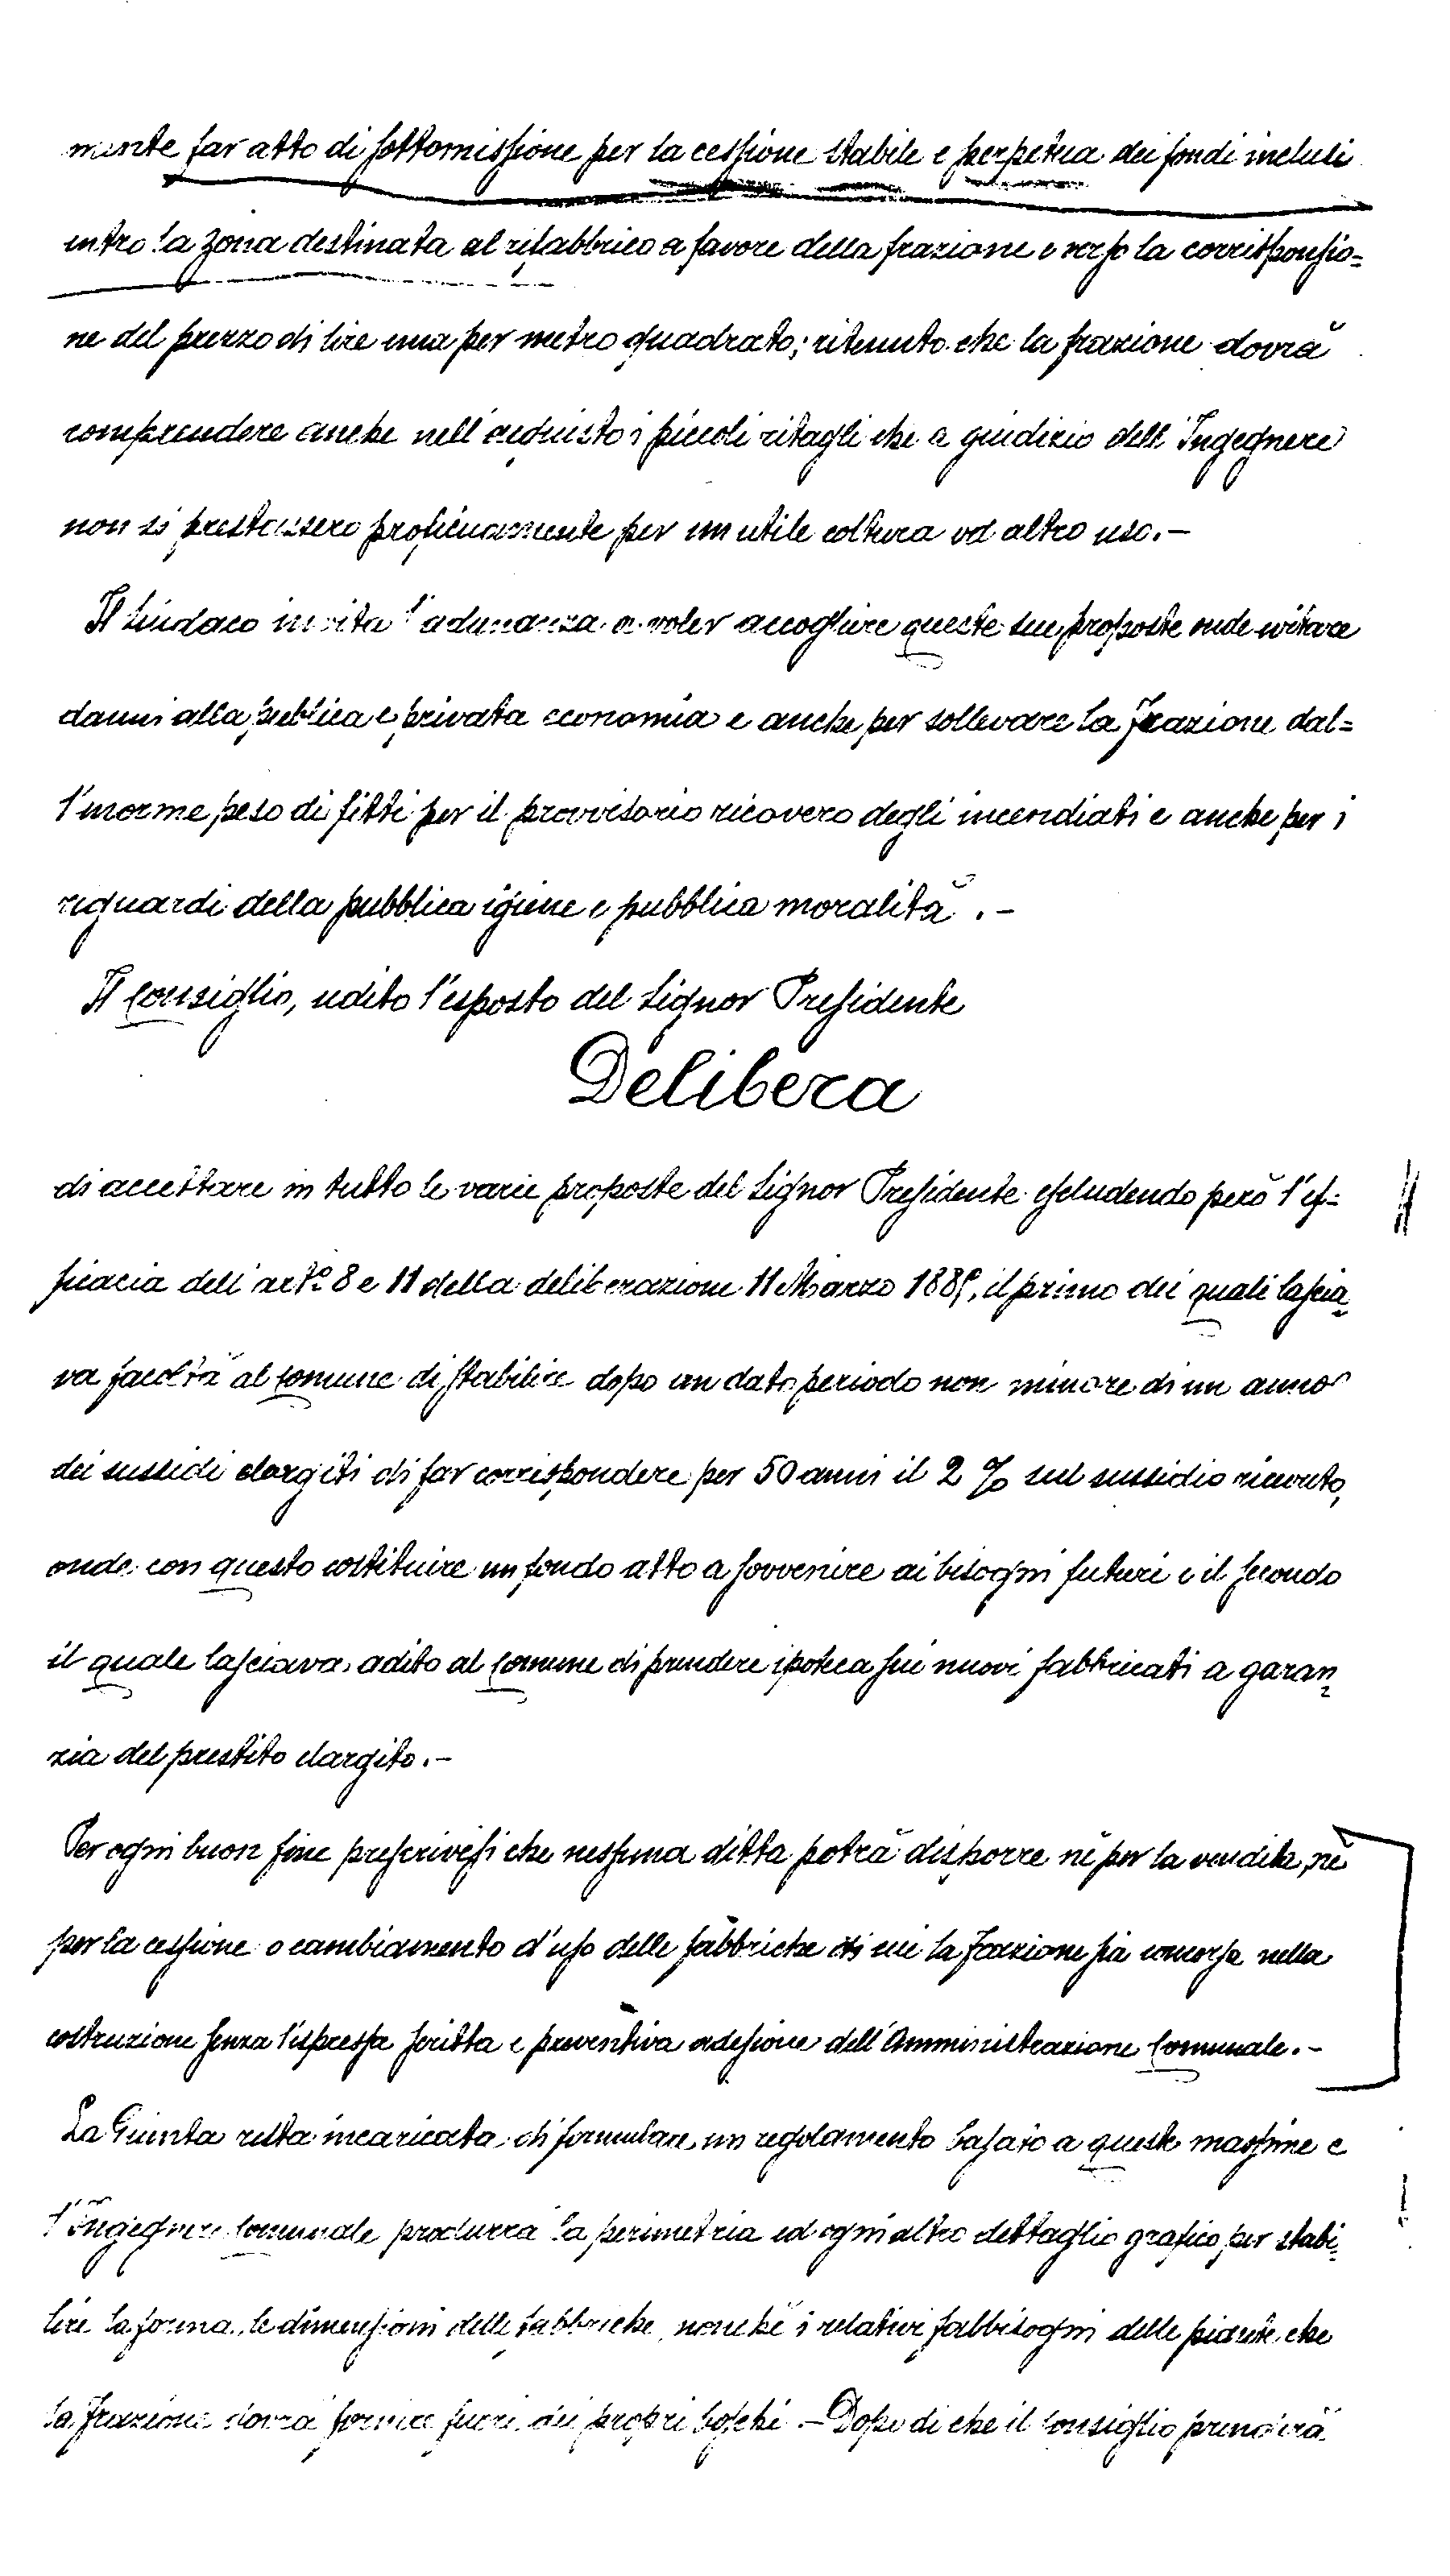 mente far atto di sottomissione per la cessione stabile e perpetua dei fondi inclusi
entro la zona destinata al rifabbrico a favore della frazione e verso la corrisponsio=
ne del prezzo di lire una per metro quadrato; ritenuto che la frazione dovrà
comprendere anche nell'acquisto i piccoli ritagli che a giudizio dell'Ingegnere
non si prestassero proficuamente per un utile coltura od altro uso.-
Il Sindaco invita l'adunanza a voler accogliere queste sue proposte onde evitare
danni alla publica e privata economia e anche per sollevare la Frazione dal=
l'enorme peso di fitti per il provvisorio ricovero degli incendiati e anche per i
riguardi della pubblica igiene e pubblica moralità.-
Il Consiglio, udito l'esposto del Signor Presidente
Delibera
di accettare in tutto le varie proposte del Signor Presidente escludendo però l'ef=
ficacia dell'art.° 8 e 11 della deliberazione 11 Marzo , il primo dei quali lascia
va facoltà al Comune di stabilire dopo un dato periodo non minore di un anno
dei sussidi elargiti di far corrispondere per 50 anni il 2 % sul sussidio ricevuto,
onde con questo costituire un fondo atto a sovvenire ai bisogni futuri e il secondo
il quale lasciava adito al Comune di prendere ipoteca sui nuovi fabbricati a garan
zia del prestito elargito.-
Per ogni buon fine prescrivesi che nessuna ditta potrà disporre nè per la vendita, nè
per la cessione o cambiamento d'uso delle fabbriche di cui la Frazione sia concorsa nella
costruzione senza l'espressa scritta e preventiva adesione dell'Amministrazione Comunale.-
La Giunta resta incaricata di formulare un regolamento basato a queste massime e
l'Ingegnere Comunale produrrà la perimetria ed ogni altro dettaglio grafico per stabi=
lire la forma, le dimensioni delle fabbriche, nonchè i relativi fabbisogni delle piante che
la Frazione dovrà fornire fuori dei propri boschi.- Dopo di che il Consiglio prenderà